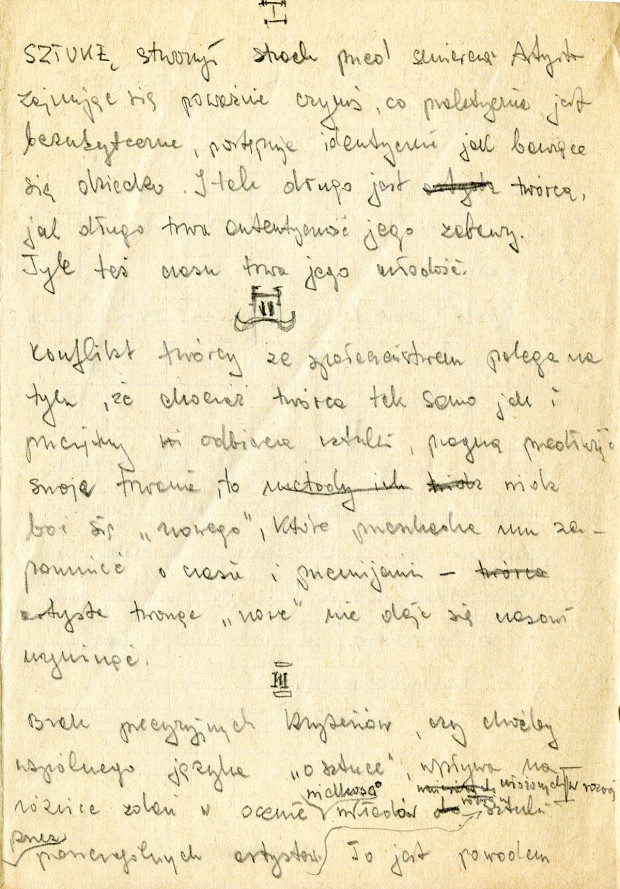 I
SZTUKĘ, stworzył strach przed śmiercią Artysta
zajmując się poważnie czymś, co praktycznie jest
bezużyteczne, postępuje identycznie jak bawiące
się dziecko. I tak długo jest artysta twórcą,
jak długo trwa autentyczność jego zabawy.
Tyle też czasu trwa jego młodość.
II
Konflikt twórcy ze społeczeństwem polega na
tym, że chociaż twórca tak samo jak i
przeciętny odbiorca sztuki, pragną przedłużyć
swoje trwanie, to metody ich widz
boi się „nowego", które przeszkadza mu za-
pomnieć o czasie i przemijaniu – twórca
artysta tworząc „nowe" nie daje się czasowi
wyminąć.
III
Brak precyzyjnych kryteriów, czy choćby
wspólnego języka „o sztuce", wpływa na
różnice zdań w ocenie wielkości wkładów wniesionych w rozwój sztuki
przez poszczególnych artystów To jest powodem